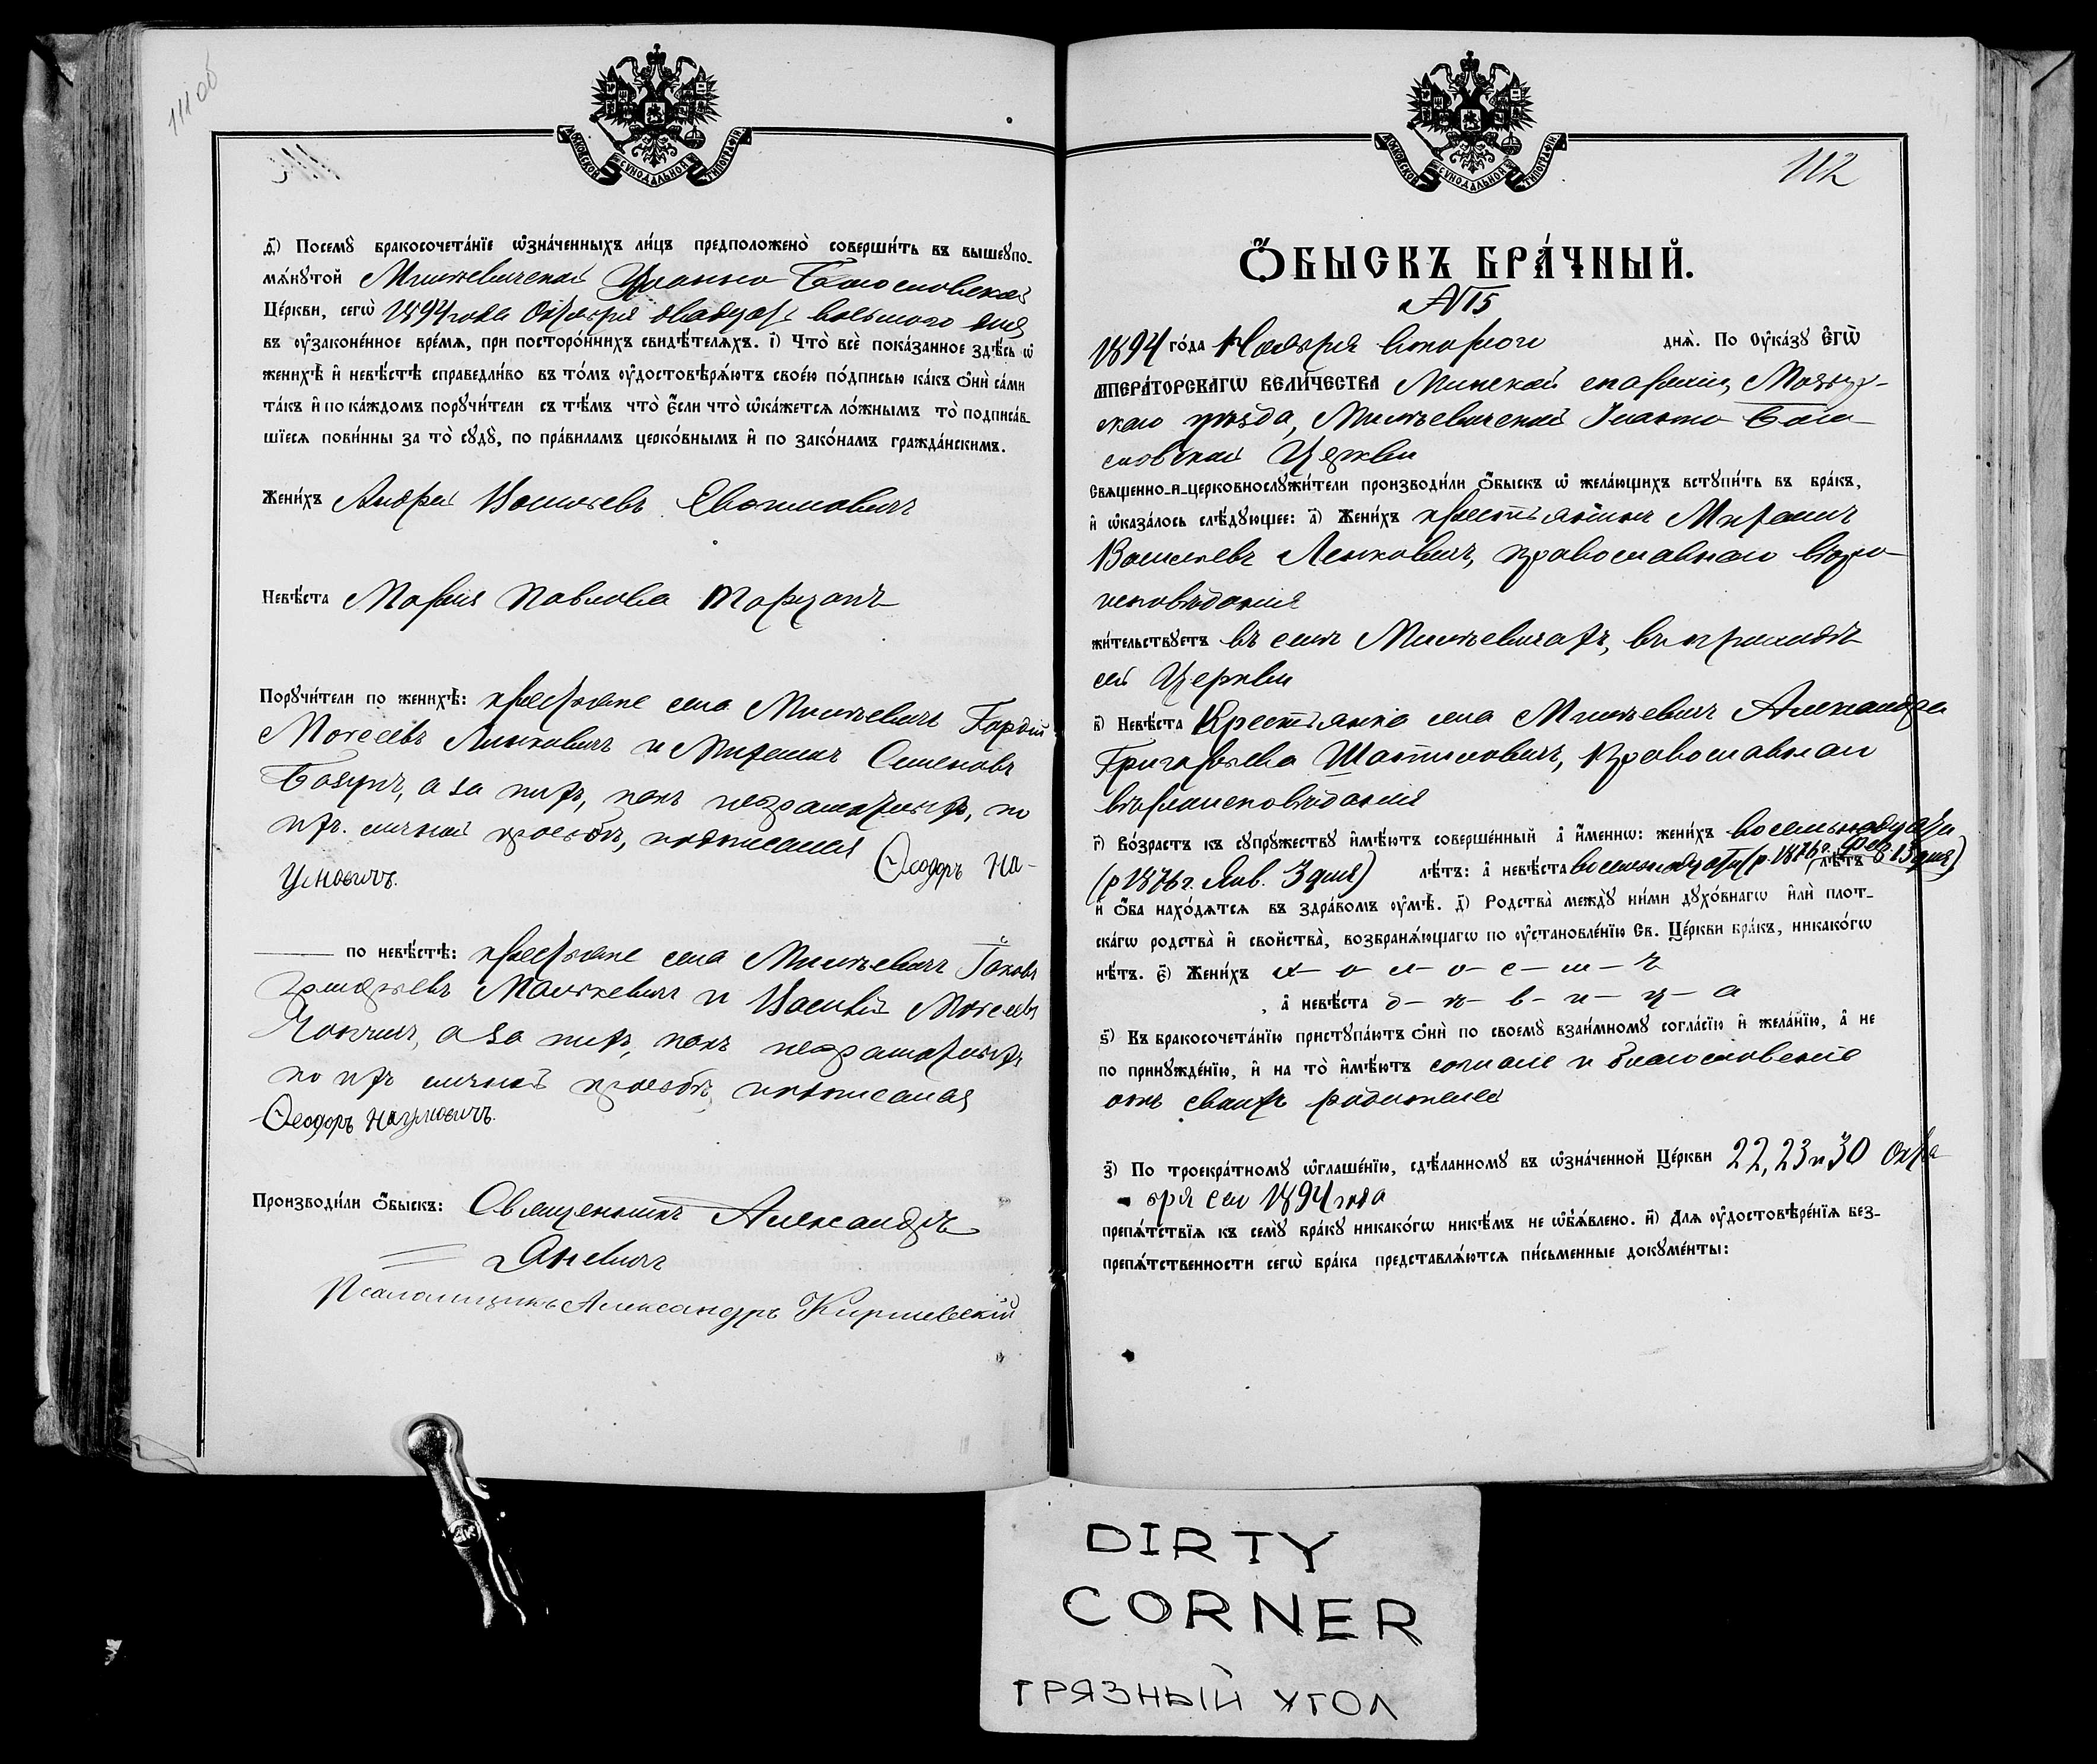 111 об
МОСКОВСКОЙ СѴНОДАЛЬНОЙ ТИПОГРАФІИ
ѳ҃) Посемꙋ̀ бракосочета́нїе ѡ҆зна́ченныхъ ли́цъ предположено̀ соверши́ть въ вышеꙋпо-
мѧ́нꙋтой Милевичской Іоанно Богословской
Це́ркви, сегѡ̀ 1894 года Октября двадцать восьмого дня
въ ᲂу҆законе́нное вре́мѧ, при посторо́ннихъ свидѣ́телѧхъ. і҃) Что̀ всѐ пока́занное здѣ́сь ѡ҆
женихѣ̀ и҆ невѣ́стѣ справедли́во въ то́мъ ᲂу҆достовѣрѧ́ютъ свое́ю по́дписью ка́къ ѻ҆нѝ са́ми
та́къ и҆ по ка́ждомъ порꙋчи́тели съ тѣ́мъ что̀ є҆́сли что̀ ѡ҆ка́жетсѧ ло́жнымъ то̀ подписа́в-
шїесѧ пови́нны за то̀ сꙋдꙋ̀, по пра́виламъ церко́внымъ и҆ по зако́намъ гражда́нскимъ.
Жени́хъ Андрей Васильевъ
Невѣ́ста Марія Павлова
Порꙋчи́тели по женихѣ̀: крестьяне села Милевичъ Гордій
Моѵсеевъ Линковичъ и Миронъ Семеновъ
а за нихъ, какъ неграмотныхъ, по
ихъ личной просьбѣ, подписался Ѳеодоръ На-
умовичъ.
по невѣ́стѣ: крестьяне села Милевичъ Іаковъ
Малькевичъ и Василій Моѵсеевъ
а за нихъ, какъ неграмотныхъ
по ихъ личной просьбѣ, подписался
Ѳеодоръ Наумовичъ.
Производи́ли ѻ҆́быскъ: Священникъ Александръ
Яневичъ
Псаломщикъ Александръ
МОСКОВСКОЙ СѴНОДАЛЬНОЙ ТИПОГРАФІИ
112
Ѻ҆́БЫСКЪ БРА́ЧНЫЙ.
№ 15
1894 го́да Ноября второго днѧ̀. По ᲂу҆ка́зꙋ Є҆гѡ̀
ІМПЕРА́ТОРСКАГѠ ВЕЛИ́ЧЕСТВА Минской епархіи, Мозыр-
скаго уѣзда, Милевичской Іоанно Бого-
словской Церкви
Свѧщенно-и-церковнослꙋжи́тели производи́ли ѻ҆́быскъ ѡ҆ жела́ющихъ встꙋпи́ть въ бра́къ,
и҆ ѡ҆каза́лось слѣ́дꙋющее: а҃) Жени́хъ крестьянинъ Миронъ
Васильевъ Ленковичъ, православнаго вѣро-
исповѣданія
жи́тельствꙋетъ въ селѣ Милевичахъ, въ приходѣ
сей Церкви
в҃) Невѣ́ста Крестьянка села Милевичъ Александра
Григорьева Шатиловичъ, православнаго
вѣроисповѣданія
г҃) Во́зрастъ къ сꙋпрꙋ́жествꙋ и҆мѣ́ютъ соверше́нный а҆ и҆́меннѡ: жени́хъ восемнадцати
(р 1876 г. Янв. 3 дня) лѣ́тъ: а҆ невѣ́ста восемнадцати (р. 1876 г. Фев. 13 дня) лѣ́тъ
и҆ ѻ҆́ба нахо́дѧтсѧ въ здра́вомъ ᲂу҆мѣ̀. д҃) Родства̀ междꙋ̀ ни́ми дꙋхо́внагѡ и҆лѝ плот-
ска́гѡ родства̀ и҆ свойства̀, возбранѧ́ющагѡ по ᲂу҆становле́нїю Св. Це́ркви бра́къ, никако́гѡ
нѣ́тъ. є҃) Жени́хъ х – о – л – о – с – т – ъ
, а҆ невѣ́ста д – ѣ – в – и – ц – а
ѕ҃) Къ бракосочета́нїю пристꙋпа́ютъ ѻ҆нѝ по своемꙋ̀ взаи́мномꙋ согла́сїю и҆ жела́нїю, а҆ не
по принꙋжде́нїю, и҆ на то̀ и҆мѣ́ютъ согласіе и благословеніе
отъ своихъ родителей
з҃) По троекра́тномꙋ ѡ҆глаше́нїю, сдѣ́ланномꙋ въ ѡ҆зна́ченной Це́ркви 22, 23 и 30 Октя-
бря сего 1894 года
препѧ́тствїѧ къ семꙋ̀ бра́кꙋ никако́гѡ никѣ́мъ не ѡ҆б̾ѧ́влено. и҃) Длѧ ᲂу҆достовѣре́нїѧ без-
препѧ́тственности сегѡ̀ бра́ка представлѧ́ютсѧ пи́сьменные докꙋме́нты:
DIRTY
CORNER
ГРЯЗНЫЙ УГОЛ